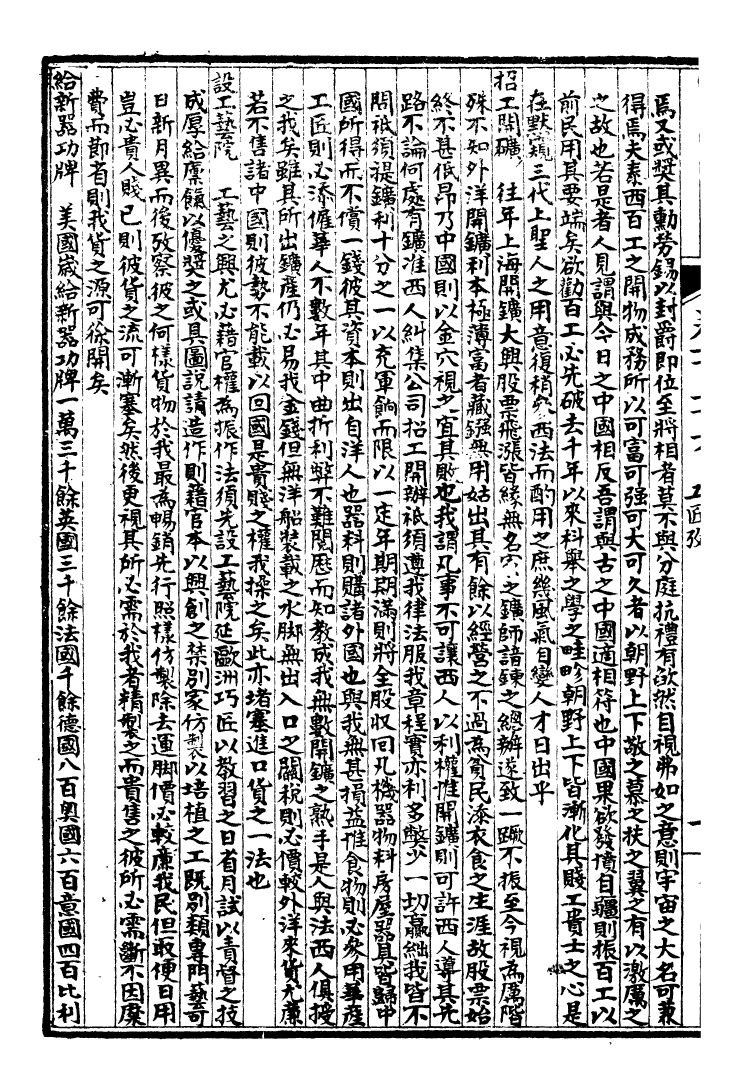 焉又或獎其勳勞錫以封爵即位至將相者莫不與分庭抗禮有欿然目視弗如之意則宇宙之大名可兼
得焉夫泰西百工之開物成務所以可富可强可大可久者以朝野上下敬之慕之扶之翼之有以激厲之
之故也若是者人見謂與今日之中國相反吾謂與古之中國適相符也中國果欲發憤自彊則振百工以
前民用其要端矣欲勸百工必先破去千年以來科舉之學之畦畛朝野上下皆漸化其賤工貴士之心是
在默窺三代上聖人之用意復稍參西法而酌用之庶幾風氣自變人才日出乎
招工開礦　往年上海開鑛大興股票飛漲皆緣無名穴之鑛師諳鍊之總辦遂致一蹶不振至今視為厲階
殊不知外洋開鑛利本極薄富者藏鏹無用姑出其有餘以經營之不過為貧民添衣食之生涯故股票始
終不甚低昂乃中國則以金穴視之宜其敗也我謂凡事不可讓西人以利權惟開鑛則可許西人導其先
路不論何處有鑛准西人糾集公司招工開辦祇須遵我律法服我章程實亦利多弊少一切贏絀我皆不
問祇須提鑛利十分之一以充軍餉而限以一定年期期滿則將全股收回凡機器物料房屋器具皆歸中
國所得而不償一錢彼其資本則出自洋人也器料則購諸外國也與我無甚損益惟食物則必參用華產
工匠則必添僱華人不數年其中曲折利弊不難閱歷而知教成我無數開鑛之熟手是人與法西人俱授
之我矣雖其所出鑛產仍必易我金錢但無洋船裝載之水脚無出入口之關稅則必價較外洋來貨尤廉
若不售諸中國則彼勢不能載以回國是貴賤之權我操之矣此亦堵塞進口貨之一法也
設工藝院　工藝之興尤必藉官權為振作法須先設工藝院延歐洲巧匠以教習之日省月試以責督之技
成厚給廩餼以優獎之或具圖說請造作則藉官本以興創之禁別家仿製以培植之工既別類專門藝可
日新月異而後攷察彼之何樣貨物於我最為暢銷先行照樣仿製除去運脚價必較廉我民但取便日用
豈必貴人賤已則彼貨之流可漸塞矣然後更視其所必需於我者精製之而貴售之彼所必需斷不因糜
費而節省則我貨之源可徐開矣
給新器功牌　美國歲給新器功牌一萬三千餘英國三千餘法國千餘德國八百奧國六百意國四百比利
工匠攷